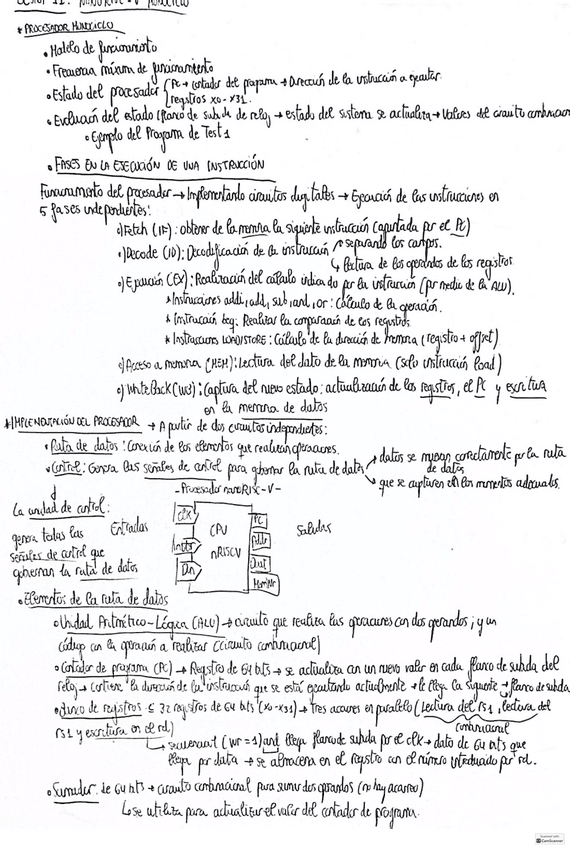 * PROCESADOR MONOCICLO
• Modelo de funcionamiento
• Frecuencia máxima de funcionamiento
• Estado del procesador { PC → contador del programa → Dirección de la instrucción a ejecutar.
registros x0 - x31.
• Evolución del estado (flanco de subida de reloj → estado del sistema se actualiza → Valores del circuito combinacion
• Ejemplo del Programa de Test 1
• FASES EN LA EJECUCIÓN DE UNA INSTRUCCIÓN
Funcionamiento del procesador → Implementando circuitos digitales → Ejecución de las instrucciones en
5 fases independientes:
o) Fetch (IF): obtener de la memoria la siguiente instrucción (apuntada por el PC)
o) Decode (ID): Decodificación de la instrucción → separando los campos.
↳ lectura de los operandos de los registros.
o) Ejecución (EX): Realización del cálculo indicado por la instrucción (por medio de la ALU).
* Instrucciones addi, add, sub, and, or: Cálculo de la operación.
* Instrucción beq: Realizar la comparación de los registros
* Instrucciones LOAD/STORE: Cálculo de la dirección de memoria (registro + offset)
o) Acceso a memoria (MEM): Lectura del dato de la memoria (solo instrucción load)
o) WriteBack (WB): Captura del nuevo estado; actualización de los registros, el PC y escritura
en la memoria de datos
* IMPLEMENTACIÓN DEL PROCESADOR → A partir de dos circuitos independientes:
• Ruta de datos: Conexión de los elementos que realizan operaciones.
• Control: Genera las señales de control para gobernar la ruta de datos → datos se muevan correctamente por la ruta
de datos
→ que se capturen en los momentos adecuados.
- Procesador nanoRISC-V -
La unidad de control:
genera todas las
señales de control que
gobiernan la ruta de datos
Entradas
CLK
Instr
Din
CPU
nRISCV
PC
Addr
Dout
MemWr
Salidas
• Elementos de la ruta de datos
• Unidad Aritmético-Lógica (ALU) → circuito que realiza las operaciones con dos operandos, y un
código con la operación a realizar (circuito combinacional)
• Contador de programa (PC) → Registro de 64 bits → se actualiza con un nuevo valor en cada flanco de subida del
reloj → contiene la dirección de la instrucción que se está ejecutando actualmente → le llega la siguiente → flanco de subida
• Banco de registros 32 registros de 64 bits (x0-x31) → tres accesos en paralelo (Lectura del rs1, lectura del
rs1 y escritura en el rd)
combinacional
↳ secuencial (wr = 1) and llega flanco de subida por el clk → dato de 64 bits que
llega por data → se almacena en el registro con el número introducido por rd.
• Sumador de 64 bits → circuito combinacional para sumar dos operandos (no hay acarreo)
↳ se utiliza para actualizar el valor del contador de programa.
CamScanner